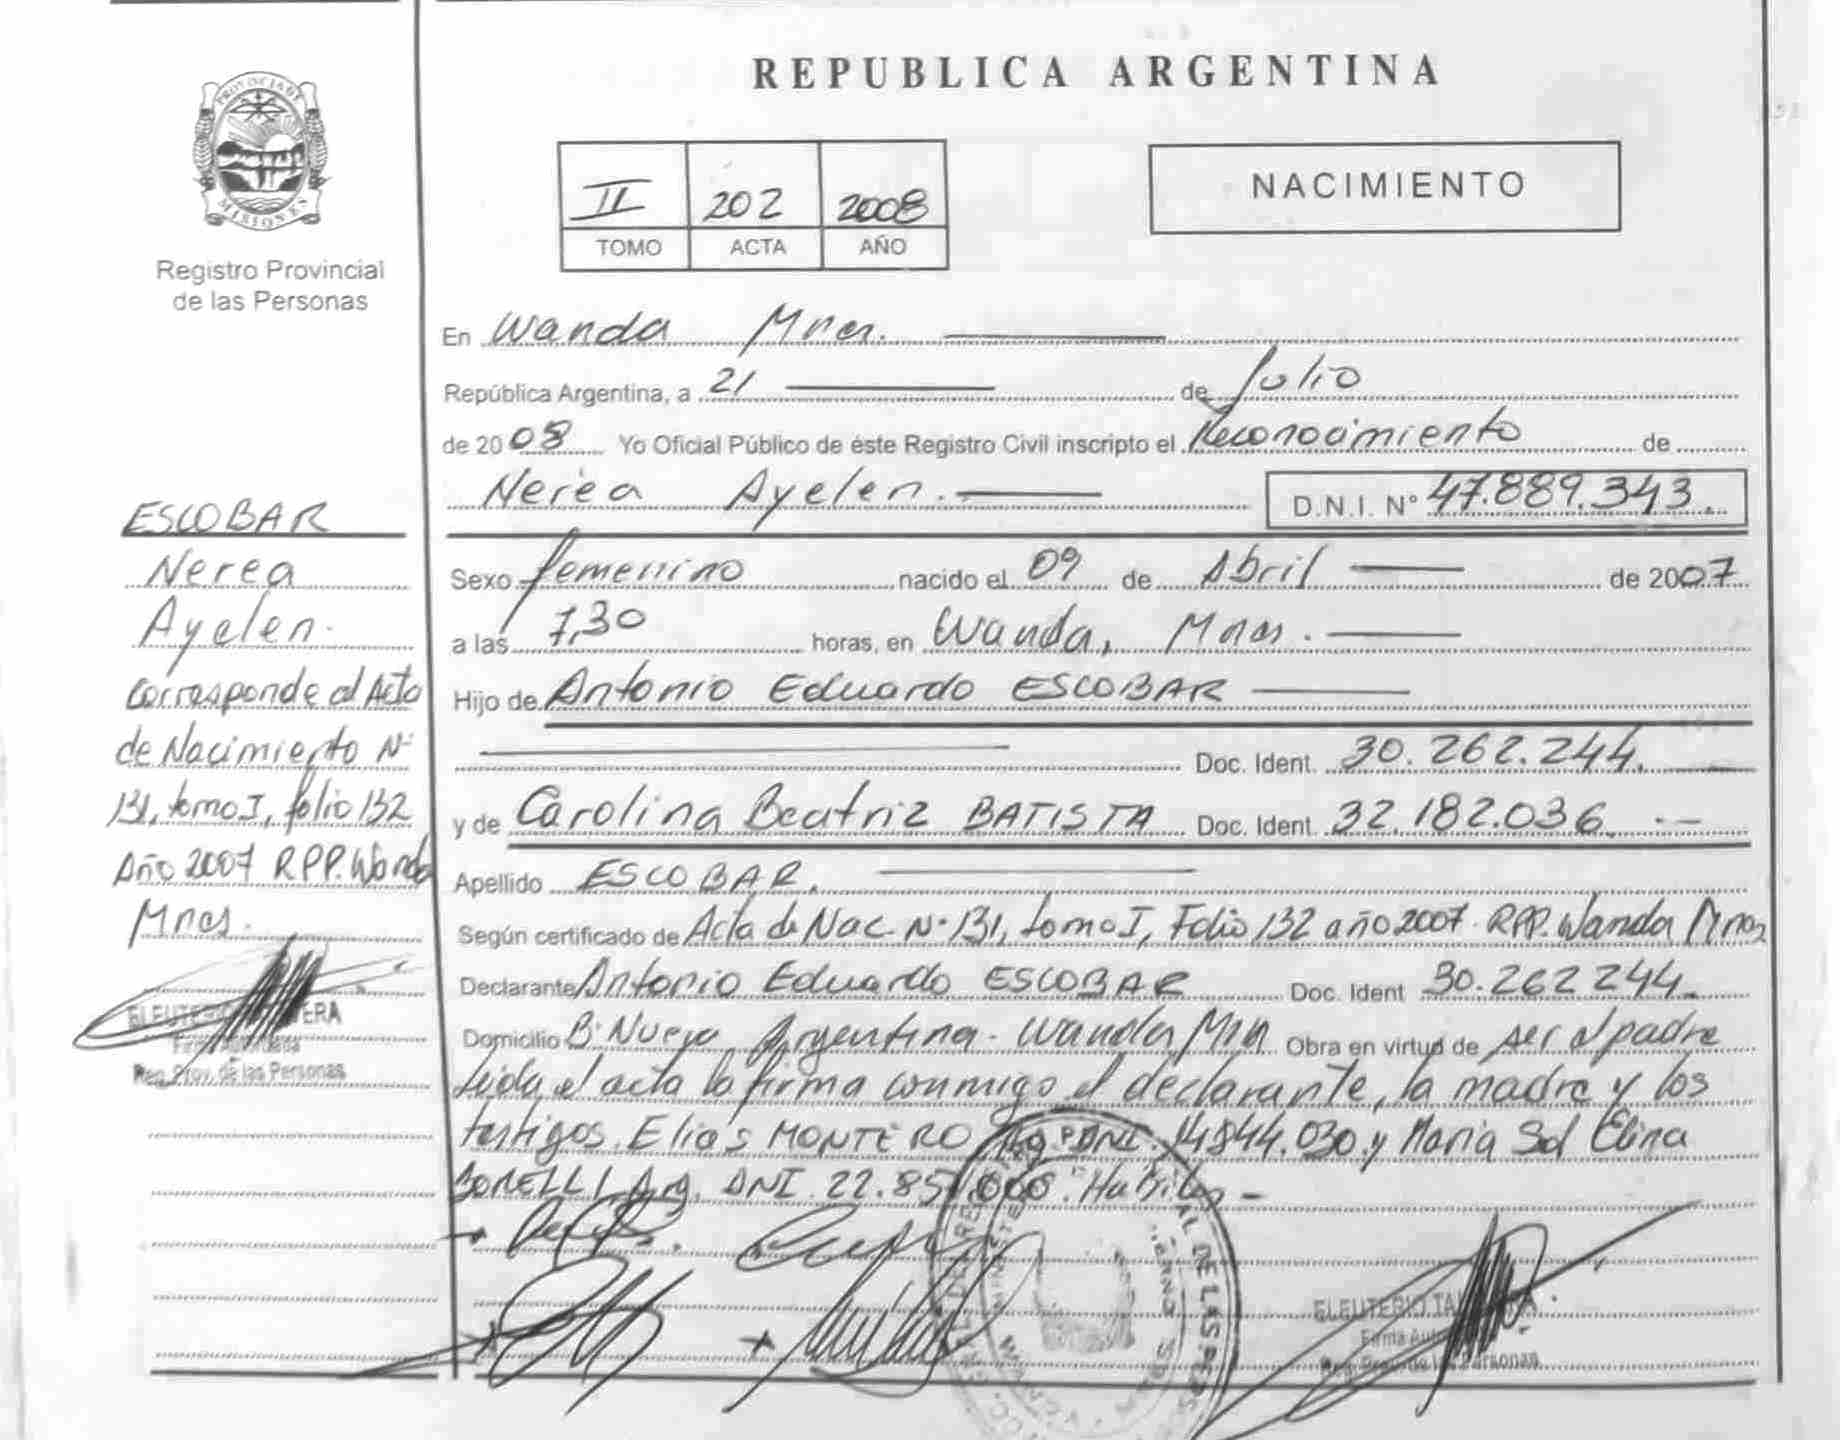 PROVINCIA DE
MISIONES
Registro Provincial
de las Personas
REPUBLICA ARGENTINA
II 202 2008
TOMO ACTA AÑO
NACIMIENTO
En Wanda Mnes.
República Argentina, a 21 de Julio
de 2008 Yo Oficial Público de éste Registro Civil inscripto el Reconocimiento de
Nerea Ayelen. D.N.I. N° 47.889.343.
Sexo femenino nacido el 09 de Abril de 2007
a las 7,30 horas, en Wanda, Mnes.
Hijo de Antonio Eduardo ESCOBAR
Doc. Ident. 30.262.244.
y de Carolina Beatriz BATISTA Doc. Ident. 32.182.036.
Apellido ESCOBAR.
Según certificado de Acta de Nac. N° 131, tomo I, Folio 132 año 2007. RPP. Wanda Mnes
Declarante Antonio Eduardo ESCOBAR Doc. Ident 30.262244.
Domicilio B° Nueva Argentina - Wanda Mn Obra en virtud de ser el padre
leida el acta la firma conmigo el declarante, la madre y los
testigos. Elias MONTERO Arg DNI. 14844.030. y Maria Sol Elina
BORELLI Arg. DNI 22.85 Habiles -
ESCOBAR
Nerea
Ayelen.
Corresponde al Acta
de Nacimiento N°
131, tomo I, folio 132
Año 2007 RPP. Wanda
Mnes.
ELEUTERIO
Firma Autorizada
Reg. Prov. de las Personas
ELEUTERIO
Firma
Reg. Prov. de las Personas